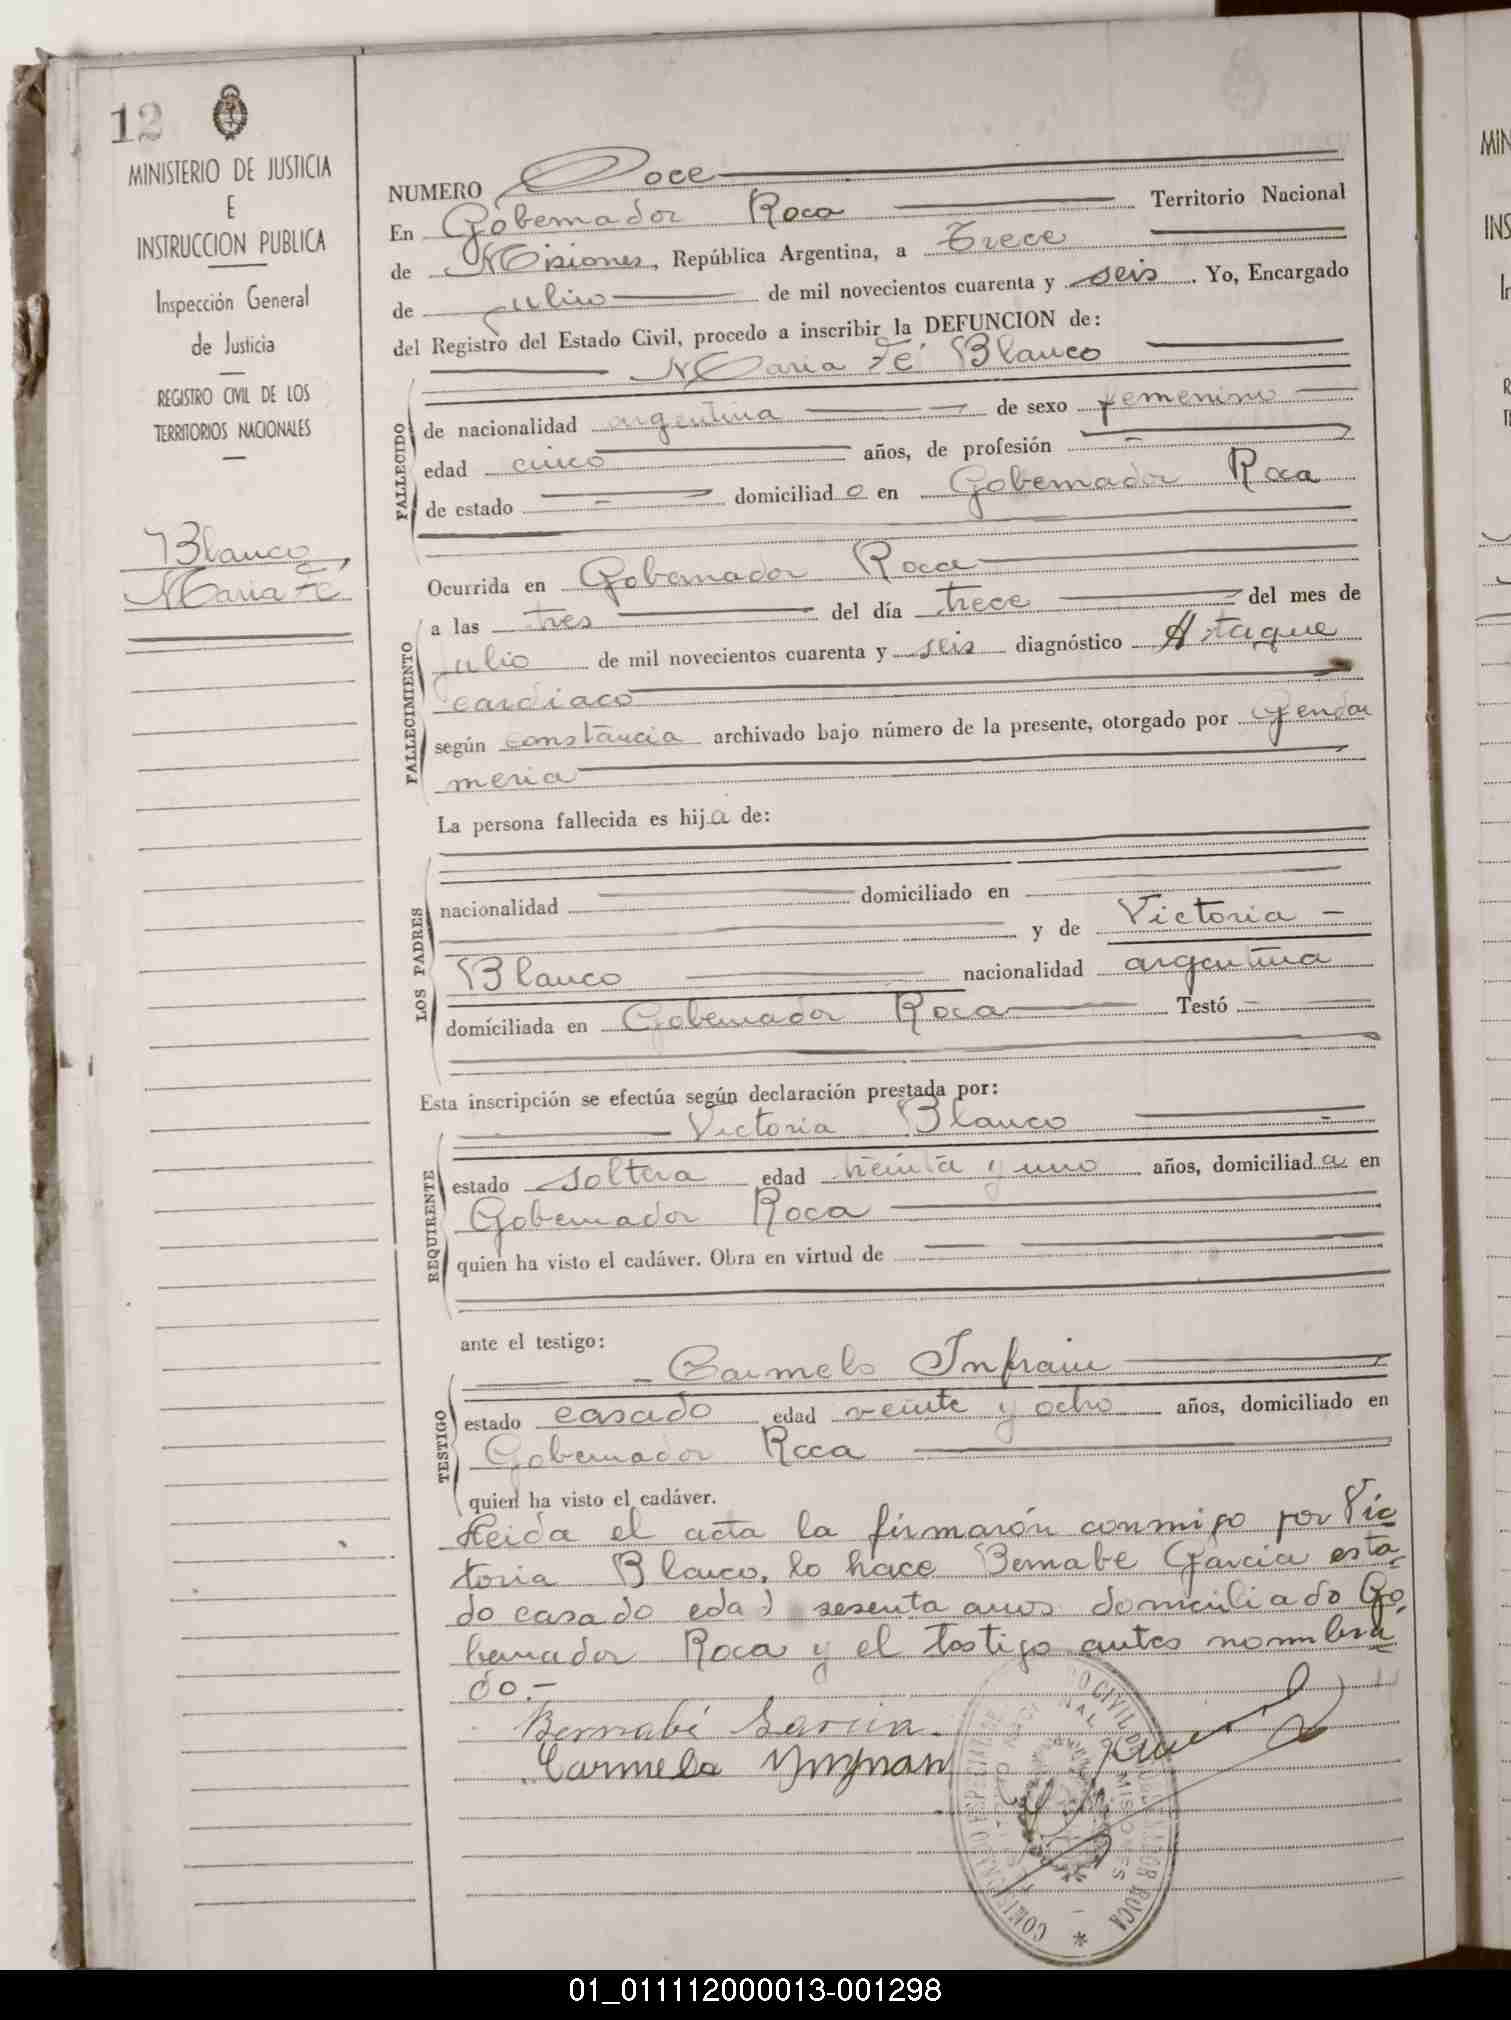 12
MINISTERIO DE JUSTICIA
E
INSTRUCCION PUBLICA
Inspección General
de Justicia
REGISTRO CIVIL DE LOS
TERRITORIOS NACIONALES
Blanco,
Maria Fé
NUMERO Doce
En Gobernador Roca Territorio Nacional
de Misiones, República Argentina, a Trece
de julio de mil novecientos cuarenta y seis. Yo, Encargado
del Registro del Estado Civil, procedo a inscribir la DEFUNCION de:
Maria Fé Blanco
FALLECIDO
de nacionalidad argentina de sexo femenino
edad cinco años, de profesión
de estado domiciliado en Gobernador Roca
Ocurrida en Gobernador Roca
FALLECIMIENTO
a las tres del día trece del mes de
julio de mil novecientos cuarenta y seis diagnóstico Ataque
cardiaco
según constancia archivado bajo número de la presente, otorgado por Gendar
meria
La persona fallecida es hija de:
LOS PADRES
nacionalidad domiciliado en
y de Victoria
Blanco nacionalidad argentina
domiciliada en Gobernador Roca Testó
Esta inscripción se efectúa según declaración prestada por:
Victoria Blanco
REQUIRENTE
estado soltera edad treinta y uno años, domiciliada en
Gobernador Roca
quien ha visto el cadáver. Obra en virtud de
ante el testigo:
Carmelo Infrain
TESTIGO
estado casado edad veinte y ocho años, domiciliado en
Gobernador Roca
quien ha visto el cadáver.
Leida el acta la firmarón conmigo por Vic
toria Blanco, lo hace Bernabe Garcia esta
do casado edad sesenta anos domiciliado Go
bernador Roca y el testigo antes nombra
do.-
Bernabé Garcia.
Carmelo
MISIONES
01_011112000013-001298